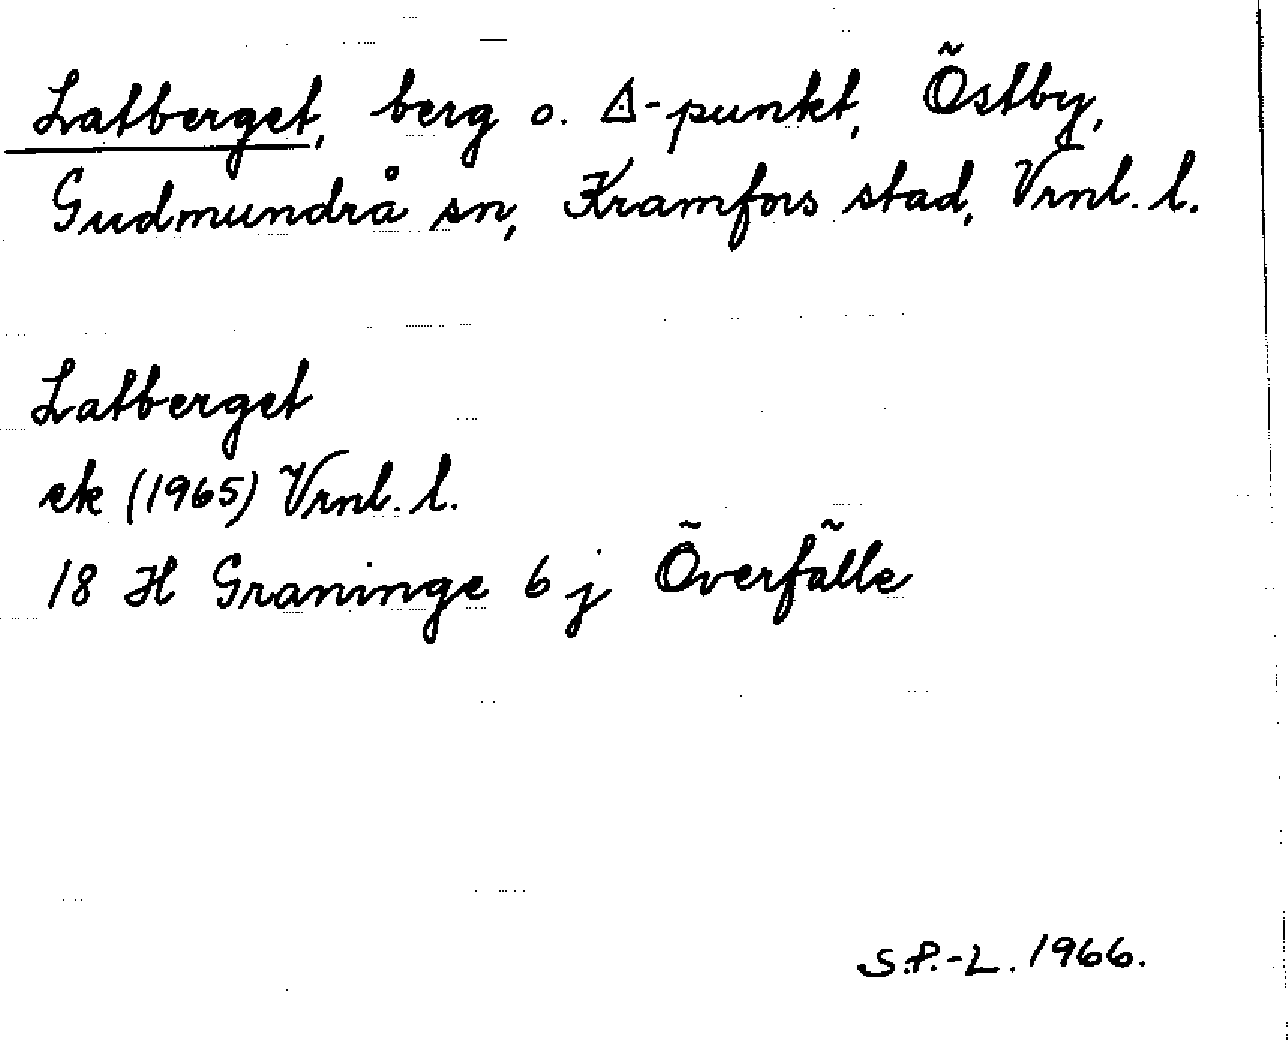 Latberget, berg o. Δ-punkt, Östby,
Gudmundrå sn, Kramfors stad, Vrnl. l.
Latberget
ek (1965) Vrnl. l.
18 H Graninge 6 j Överfälle
S.P.-L. 1966.